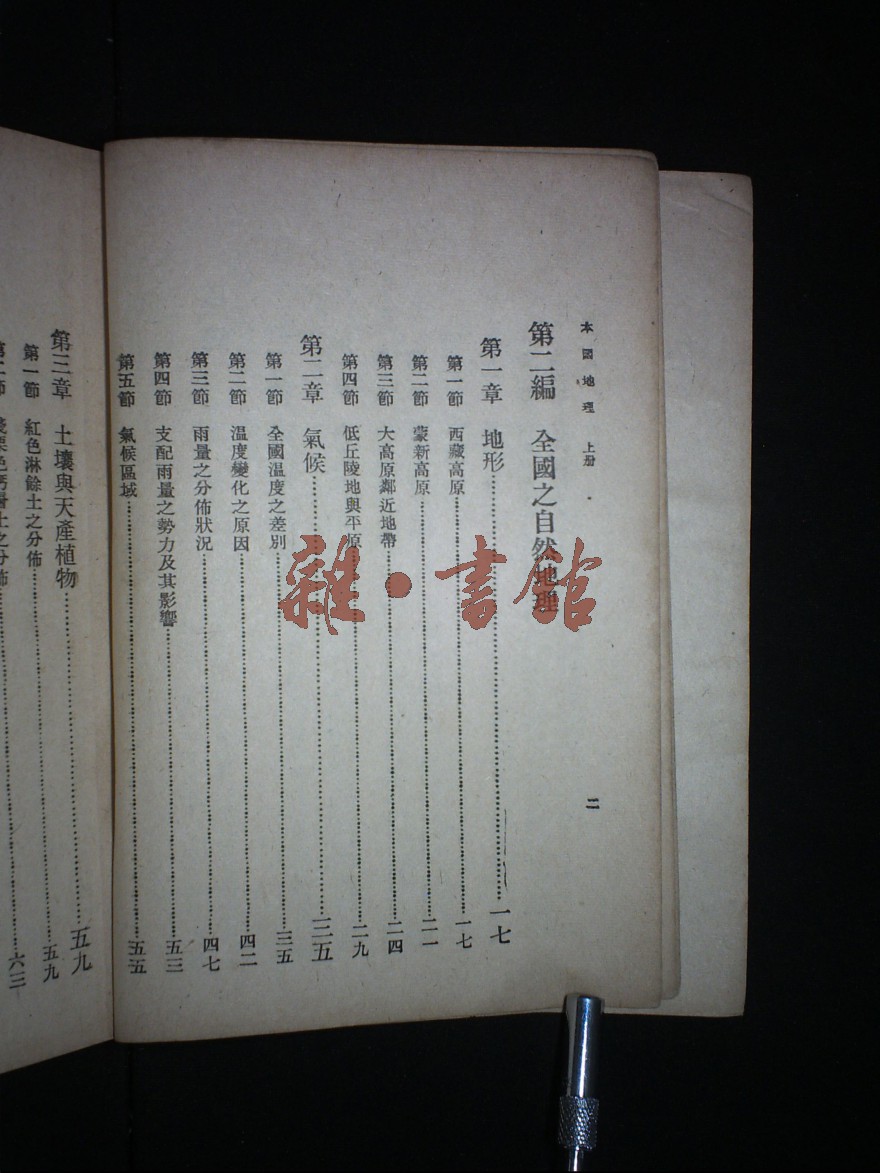 本國地理 上册
二
第二編 全國之自然地理
第一章 地形……一七
第一節 西藏高原……一七
第二節 蒙新高原……二一
第三節 大高原鄰近地帶……二四
第四節 低丘陵地與平原……二九
第二章 氣候……三五
第一節 全國溫度之差別……三五
第二節 溫度變化之原因……四二
第三節 雨量之分佈狀況……四七
第四節 支配雨量之勢力及其影響……五三
第五節 氣候區域……五五
第三章 土壤與天產植物……五九
第一節 紅色淋餘土之分佈……五九
色鈣層土之分佈……六三
雜·書館